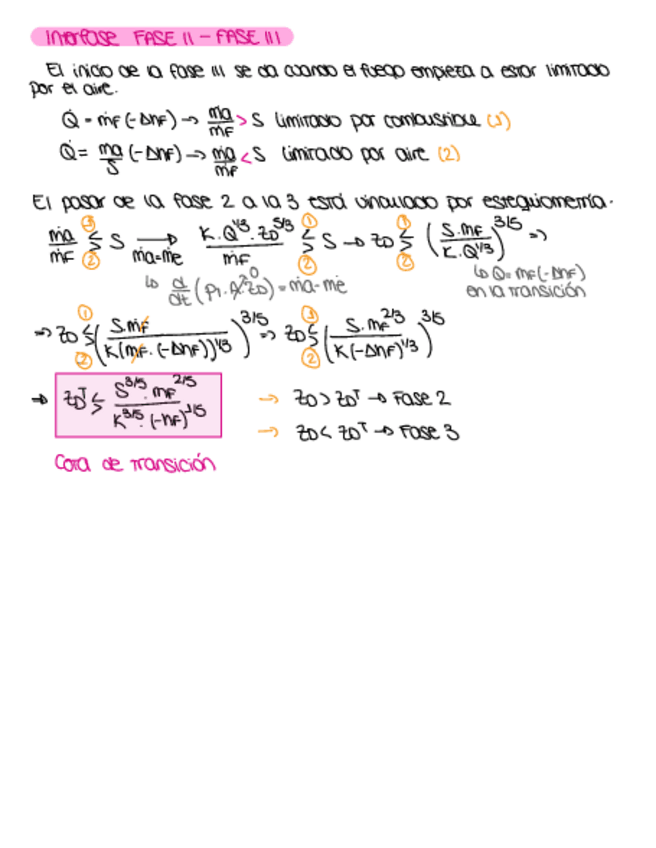 Interfase FASE II - FASE III
El inicio de la fase III se da cuando el fuego empieza a estar limitado
por el aire.
Q̇ = ṁF (-ΔhF) → ṁa/ṁF > S limitado por combustible (1)
Q̇ = ṁa/S (-ΔhF) → ṁa/ṁF < S limitado por aire (2)
El pasar de la fase 2 a la 3 está vinculado por estequiometría.
ṁa/ṁF ≶ S → ṁa=ṁe K.Q^1/3.ZD^5/3/ṁF ≶ S → ZD ≶ (S.ṁF/K.Q^1/3)^3/5 =>
↳ d/dt (ρ1.A.ZD)^0 = ṁa-ṁe ↳ Q=ṁF(-ΔhF)
en la transición
=> ZD ≶ (S.ṁF/K(ṁF.(-ΔhF))^1/3)^3/5 => ZD ≶ (S.ṁF^2/3/K(-ΔhF)^1/3)^3/5
=> ZD^T ≶ S^3/5.ṁF^2/5/K^3/5.(-hF)^1/5 → ZD > ZD^T → Fase 2
→ ZD < ZD^T → Fase 3
Cota de transición